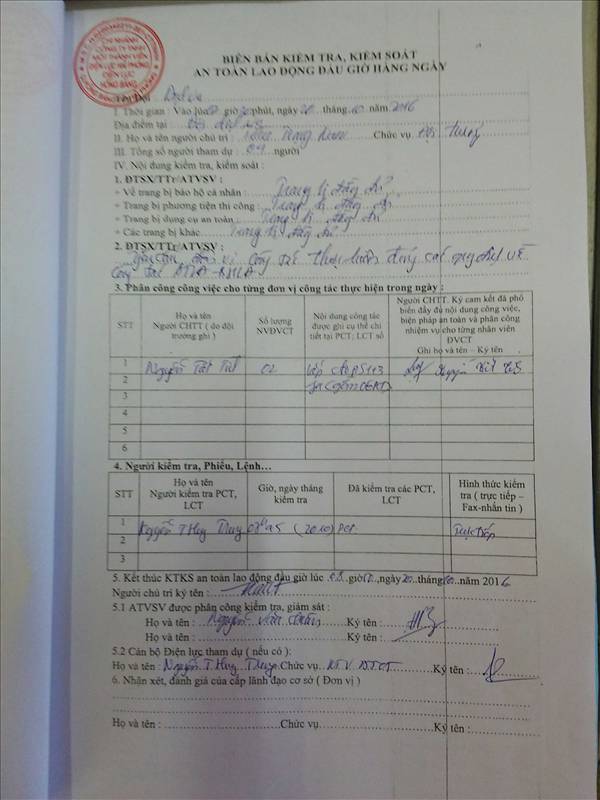 CHI NHÁNH
CÔNG TY TNHH
MỘT THÀNH VIÊN
ĐIỆN LỰC HẢI PHÒNG
ĐIỆN LỰC
HỒNG BÀNG
BIÊN BẢN KIỂM TRA, KIỂM SOÁT
AN TOÀN LAO ĐỘNG ĐẦU GIỜ HÀNG NGÀY
Tên Đội
I. Thời gian : Vào lúc giờ phút, ngày 20 tháng 10 năm 2016
Địa điểm tại
II. Họ và tên người chủ trì : Chức vụ Đội trưởng
III. Tổng số người tham dự : 04 người
IV. Nội dung kiểm tra, kiểm soát :
1. ĐTSX/TTr/ATVSV :
- Về trang bị bảo hộ cá nhân : Trang bị đầy đủ
- Trang bị phương tiện thi công : Trang bị đầy đủ
- Trang bị dụng cụ an toàn : Trang bị đầy đủ
- Các trang bị khác Trang bị đầy đủ
2. ĐTSX/TTr/ATVSV :
Yêu cầu đơn vị công tác thực hiện đúng các quy định về
công tác
3. Phân công công việc cho từng đơn vị công tác thực hiện trong ngày :
STT
Họ và tên
Người CHTT ( do đội
trưởng ghi )
Số lượng
NVĐVCT
Nội dung công tác
được ghi cụ thể chi
tiết tại PCT; LCT số
Người CHTT. Ký cam kết đã phổ
biến đầy đủ nội dung công việc,
biện pháp an toàn và phân công
nhiệm vụ cho từng nhân viên
ĐVCT
Ghi họ và tên – Ký tên
1 Nguyễn 02 Nguyễn
2
3
4
5
6
4. Người kiểm tra, Phiếu, Lệnh…
STT
Họ và tên
Người kiểm tra PCT,
LCT
Giờ, ngày tháng
kiểm tra
Đã kiểm tra các PCT,
LCT
Hình thức kiểm
tra ( trực tiếp –
Fax-nhắn tin )
1 Nguyễn T Huy PCT Trực tiếp
2
3
5. Kết thúc KTKS an toàn lao động đầu giờ lúc giờ ,ngày 20 tháng 10 năm 2016
Người chủ trì ký tên :
5.1 ATVSV được phân công kiểm tra, giám sát :
Họ và tên : Nguyễn Văn Ký tên :
Họ và tên : Ký tên :
5.2 Cán bộ Điện lực tham dự ( nếu có ):
Họ và tên : Nguyễn T. Huy Chức vụ Ký tên :
6. Nhận xét, đánh giá của cấp lãnh đạo cơ sở ( Đơn vị )
Họ và tên : Chức vụ Ký tên :